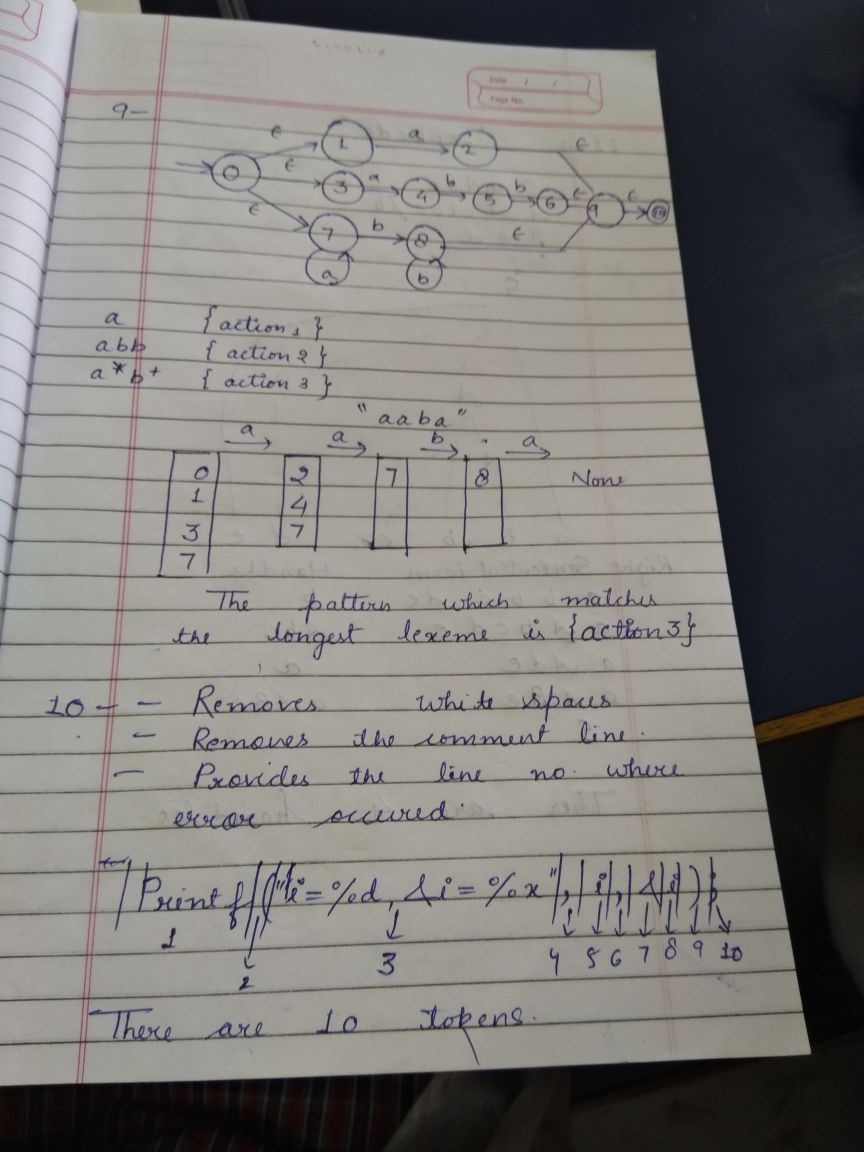 Date / /
Page No.
9-
0 ε 1 a 2 ε
ε 3 a 4 b 5 b 6 ε 9 ε 10
ε 7 b 8 ε
a b
a { action 1 }
abb { action 2 }
a*b+ { action 3 }
"aaba"
a a b a
0 2 7 8 None
1 4
3 7
7
The pattern which matches
the longest lexeme is {action 3}
10- - Removes white spaces
- Removes the comment line.
- Provides the line no. where
error occured.
|Printf|(|"i=%d, &i=%x"|,|i|,|&|i|)|;
1 2 3 4 5 6 7 8 9 10
There are 10 tokens.